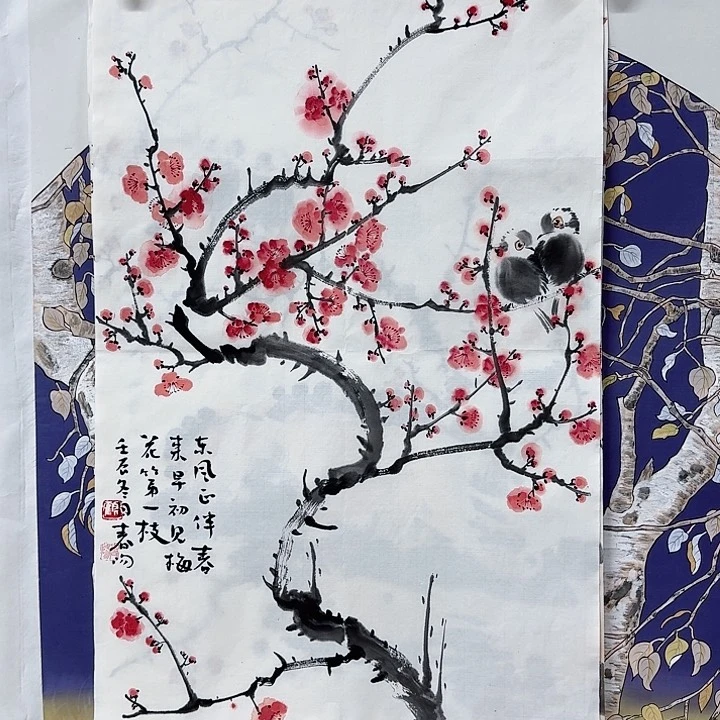 东风正伴春
来早初见梅
花第一枝
壬辰冬月春